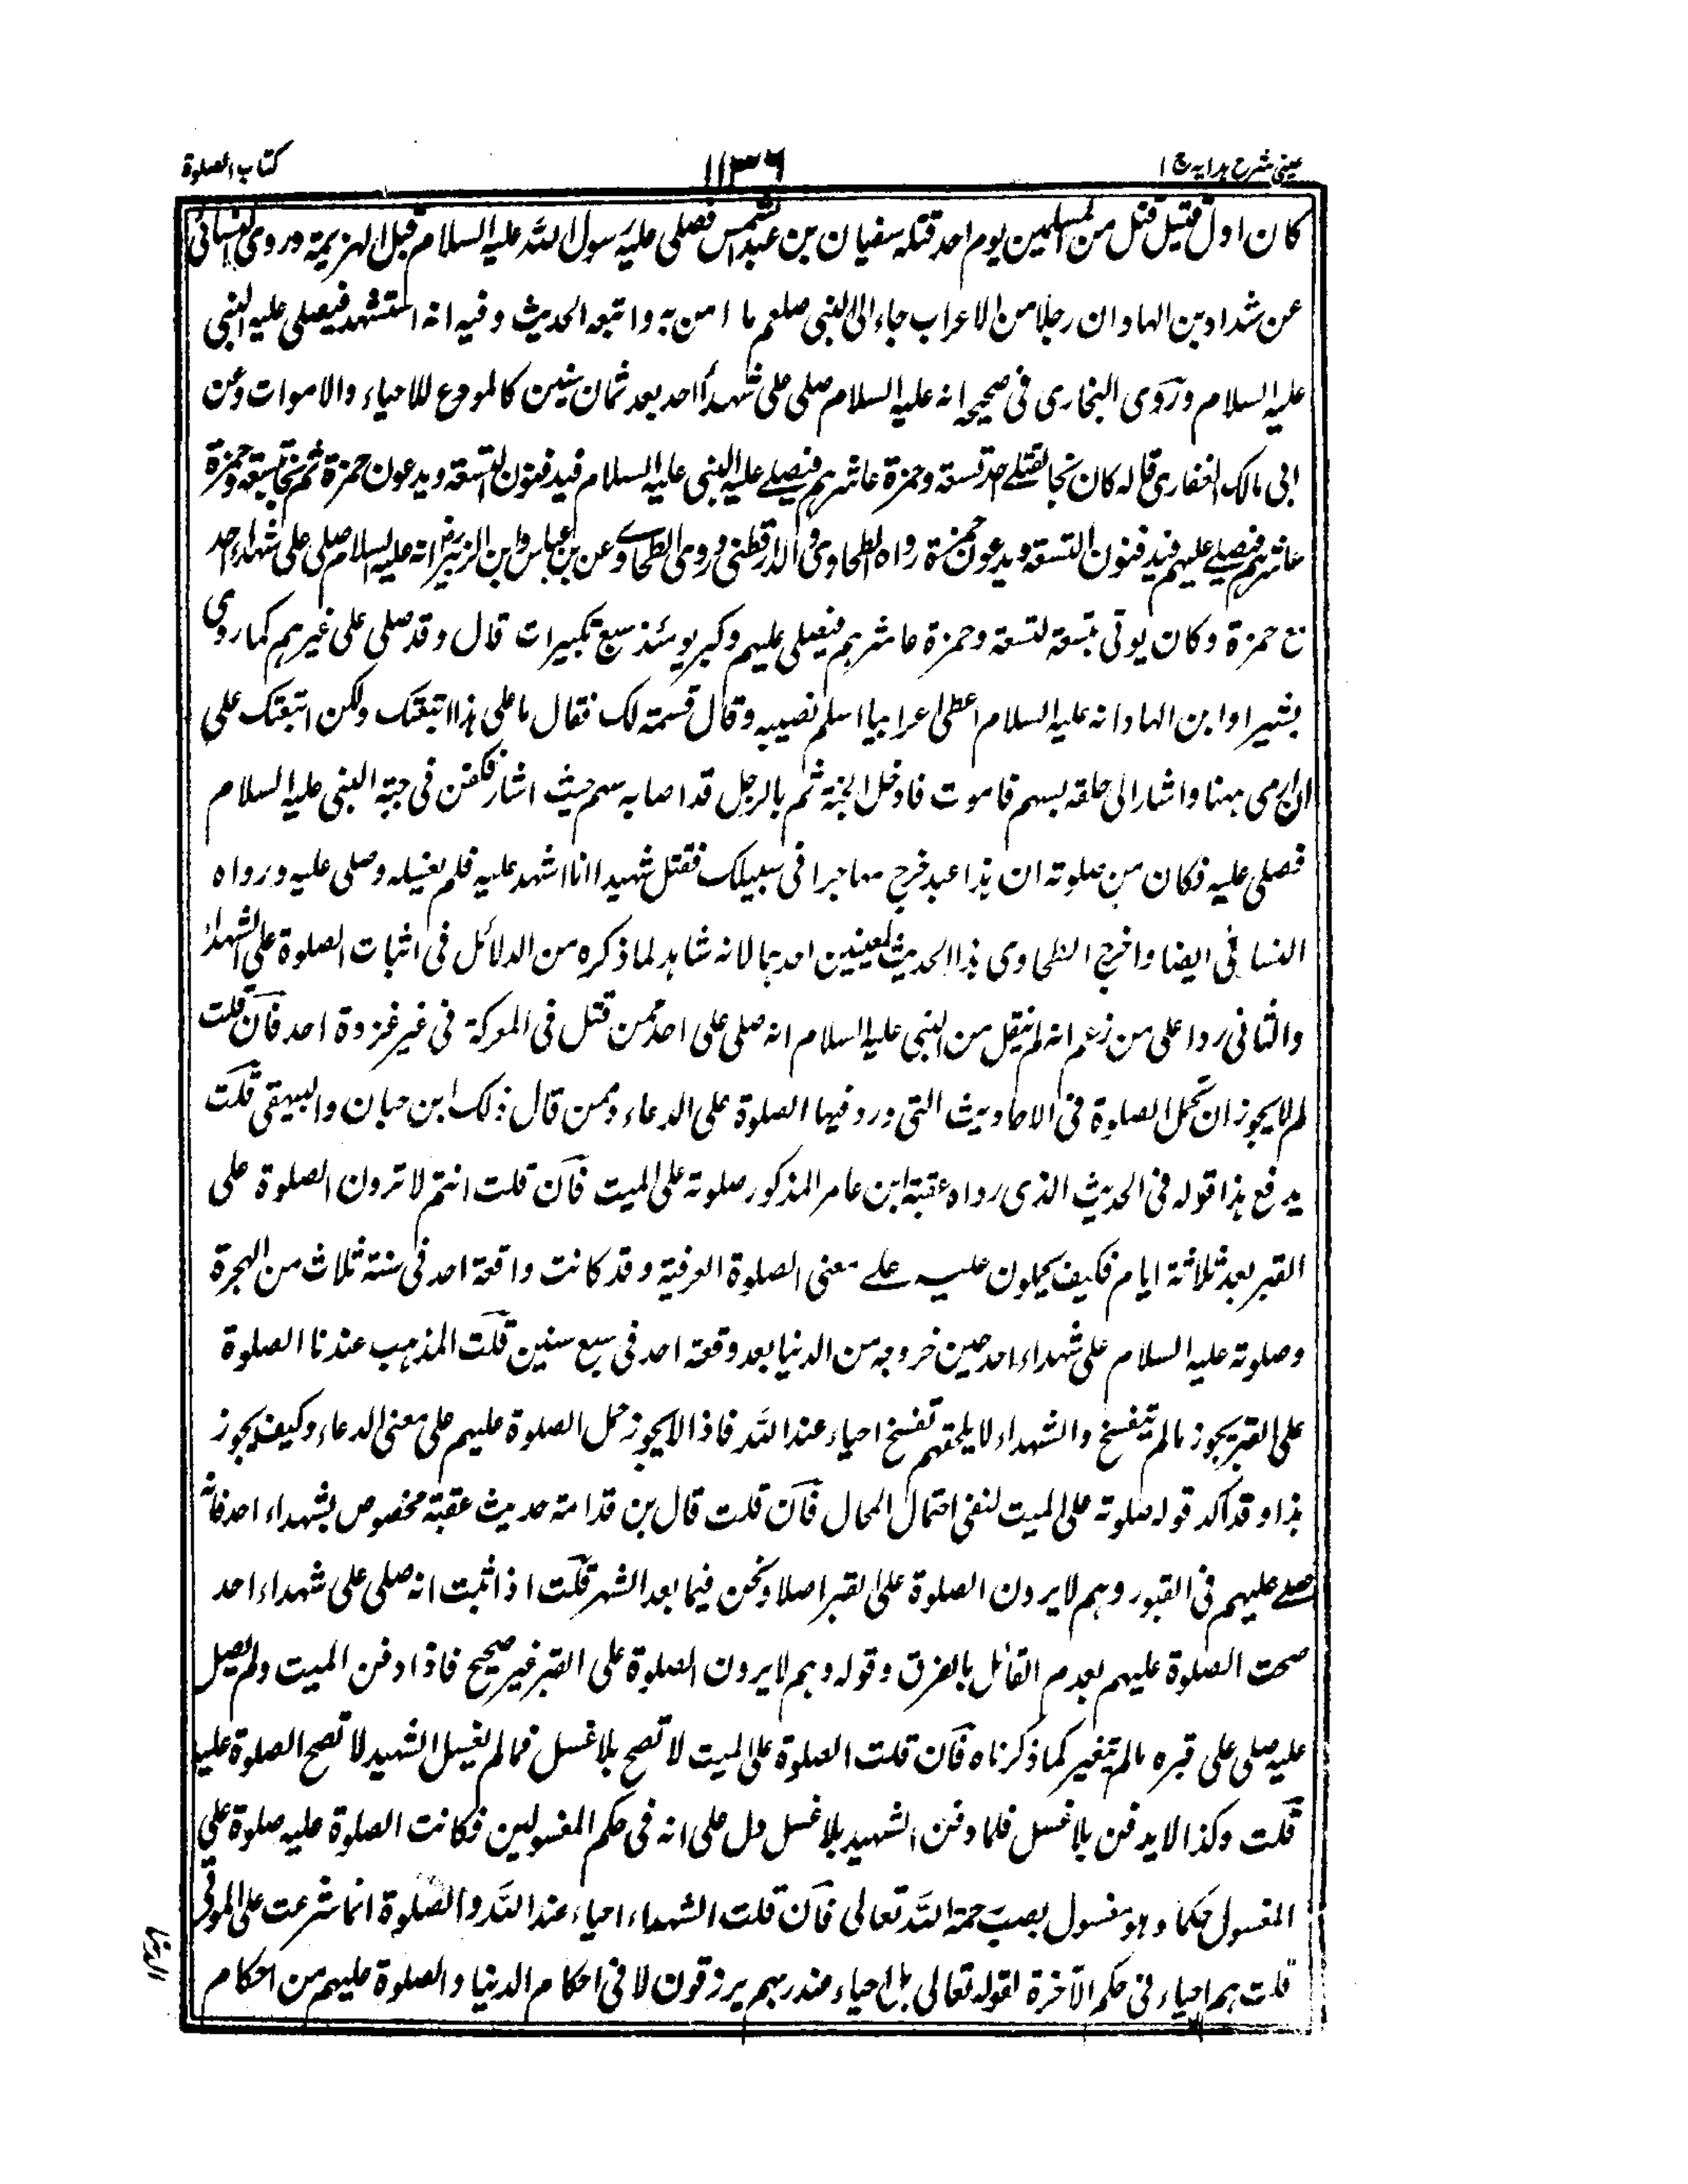 عینی شرح ہدایہ ج ۱
۱۱۳۶
کتاب الصلوة
كان اول قتيل قتل من المسلمين يوم احد قتله سفيان بن عبد الشمس فصلى عليه رسول الله عليه السلام قبل الهزيمة وروى النسائى
عن شداد بن الهاد ان رجلا من الاعراب جاء الى النبى صلعم ما امن به واتبعه الحديث وفيه انه استشهد فيصلى عليه النبى
عليه السلام وروى البخارى فى صحيحه انه عليه السلام صلى على شهداء احد بعد ثمان سنين كالمودع للاحياء والاموات وعن
ابى مالك الغفارى قال كان يجا لقتلے احد تسعة وحمزة عاشرهم فيصلے عليه النبى عليه السلام فيدفنون التسعة ويدعون حمزة ثم يجا بتسعة وحمزة
عاشرهم فيصلے عليهم فيدفنون التسعة ويدعون حمزة رواه الطحاوى والدارقطنى وروى الطحاوے عن ابن عباس وابن الزبير انه عليه السلام صلى على شهداء احد
مع حمزة وكان يوتى بتسعة لتسعة وحمزة عاشرهم فيصلى عليهم وكبر يومئذ سبع تكبيرات قال وقد صلى على غيرهم كما روى
بشير او ابن الهاد انه عليه السلام اعطى اعرابيا اسلم نصيبه وقال قسمته لك فقال ما على هذا اتبعتك ولكن اتبعتك على
ان ارمى ههنا واشار الى حلقه بسهم فاموت فادخل الجنة ثم بالرجل قد اصابه سهم حيث اشار فكفن فى جبة النبى عليه السلام
فصلى عليه فكان من صلوته ان هذا عبد خرج مهاجرا فى سبيلك فقتل شهيدا انا اشهد عليه فلم يغسله وصلى عليه ورواه
النسائى ايضا واخرج الطحاوى هذا الحديث لمعنيين احدهما لانه شاهد لما ذكره من الدلائل فى اثبات الصلوة على الشهداء
والثانى ردا على من زعم انه لم ينقل من النبى عليه السلام انه صلى على احد ممن قتل فى المعركة فى غير غزوة احد فان قلت
لم لا يجوز ان تحمل الصلوة فى الاحاديث التى ورد فيها الصلوة على الدعاء وممن قال ذلك ابن حبان والبيهقى قلت
يدفع هذا قوله فى الحديث الذى رواه عقبة ابن عامر المذكور صلوته على الميت فان قلت انتم لا ترون الصلوة على
القبر بعد ثلاثة ايام فكيف يحملون عليه علے معنى الصلوة العرفية وقد كانت واقعة احد فى سنة ثلاث من الهجرة
وصلوته عليه السلام على شهداء احد حين خروجه من الدنيا بعد وقعة احد فى سبع سنين قلت المذهب عندنا الصلوة
على القبر يجوز مالم يتفسخ والشهداء لا يلحقهم تفسخ احياء عند الله فاذا لا يجوز حمل الصلوة عليهم على معنى الدعاء وكيف يجوز
هذا وقد اكد قوله صلوته على الميت لنفى احتمال المحال فان قلت قال بن قدامة حديث عقبة مخصوص بشهداء احد فانه
صلے عليهم فى القبور وهم لا يرون الصلوة على القبر اصلا ونحن فيما بعد الشهر قلت اذا ثبت انه صلى على شهداء احد
صحت الصلوة عليهم بعدم القائل بالفرق وقوله وهم لا يرون الصلوة على القبر غير صحيح فاذا دفن الميت ولم يصل
عليه صلى على قبره مالم يتغير كما ذكرناه فان قلت الصلوة على الميت لا تصح بلا غسل فما لم يغسل الشهيد لا تصح الصلوة عليه
قلت وكذا لا يدفن بلا غسل فلما دفن الشهيد بلا غسل دل على انه فى حكم المغسولين فكانت الصلوة عليه صلوة على
المغسول حكما وهو مغسول بصب رحمة الله تعالى فان قلت الشهداء احياء عند الله والصلوة انما شرعت على الموتى
قلت هم احياء فى حكم الآخرة لقوله تعالى بل احياء عند ربهم يرزقون لا فى احكام الدنيا والصلوة عليهم من احكام
الدنيا